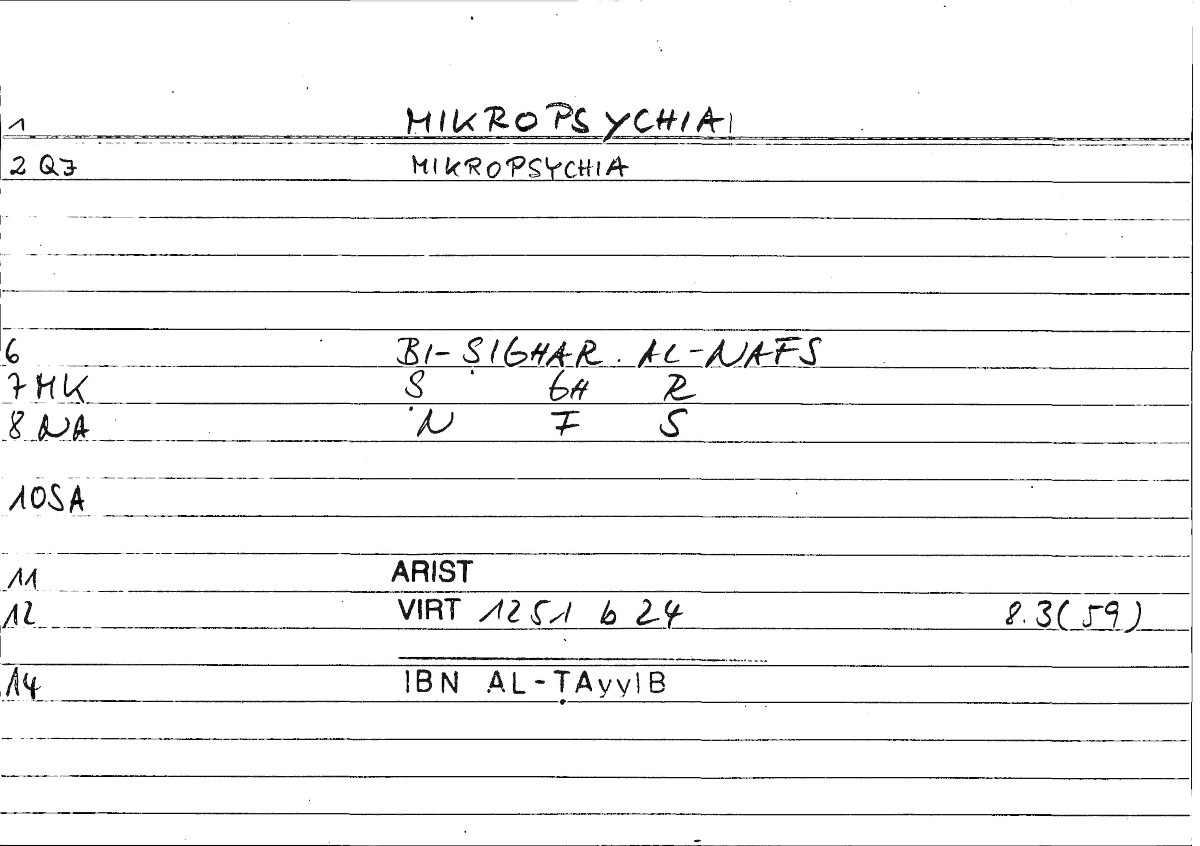 1 MIKROPSYCHIA
2 QJ MIKROPSYCHIA
6 BI-ṢIGHAR AL-NAFS
7 MK Ṣ GH R
8 NA N F S
10 SA
11 ARIST
12 VIRT 1251 b 24 8.3(59)
14 IBN AL-ṬAyyIB